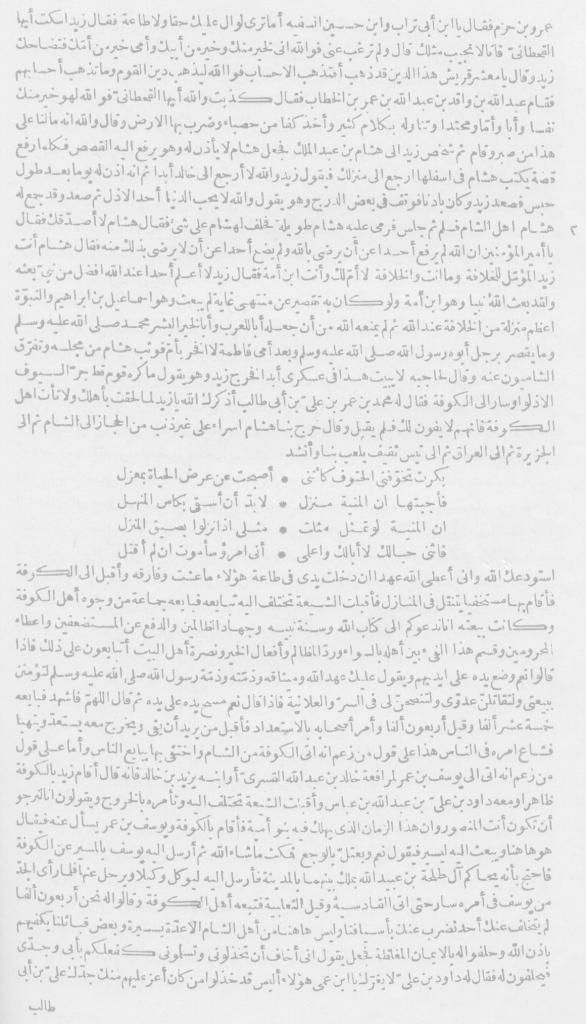 عمرو بن حزم فقال يا ابن أبي تراب وابن حسين السفيه أما ترى لوال عليك حقا ولا طاعة فقال زيد اسكت أيها
القحطاني فانا لا نجيب مثلك قال ولم ترغب عني فوالله اني لخير منك وخير من أبيك وأمي خير من أمك فتضاحك
زيد وقال يا معشر قريش هذا الدين قد ذهب أفتذهب الاحساب فوالله ليذهب دين القوم وما تذهب أحسابهم
فقام عبد الله بن واقد بن عبد الله بن عمر بن الخطاب فقال كذبت والله أيها القحطاني فوالله لهو خير منك
نفسا وأبا وأما ومحتدا وتناوله بكلام كثير وأخذ كفا من حصباء وضرب بها الارض وقال والله انه مالنا على
هذا من صبر وقام ثم شخص زيد الى هشام بن عبد الملك فجعل هشام لا يأذن له وهو يرفع اليه القصص فكلما رفع
قصة يكتب هشام في اسفلها ارجع الى منزلك فيقول زيد والله لا أرجع الى خالد أبدا ثم انه اذن له يوما بعد طول
حبس فصعد زيد وكان بادنا فوقف في بعض الدرج وهو يقول والله لا يحب الدنيا أحد الا ذل ثم صعد وقد جمع له
هشام اهل الشام فسلم ثم جلس فرمى عليه هشام طويلة فحلف لهشام على شئ فقال هشام لا أصدقك فقال
يا أمير المؤمنين ان الله لم يرفع أحدا عن أن يرضى بالله ولم يضع أحدا عن أن لا يرضى بذلك منه فقال هشام أنت
زيد المؤمل للخلافة وما أنت والخلافة لا أم لك وأنت ابن أمة فقال زيد لا أعلم أحدا عند الله افضل من نبي بعثه
ولقد بعث الله نبيا وهو ابن أمة ولو كان به تقصير عن منتهى غاية لم يبعث وهو اسماعيل بن ابراهيم والنبوة
اعظم منزلة من الخلافة عند الله ثم لم يمنعه الله من أن جعله أبا للعرب وأبا لخير البشر محمد صلى الله عليه وسلم
وما يقصر برجل أبوه رسول الله صلى الله عليه وسلم وبعد أمي فاطمة لا أفخر بأم فوثب هشام من مجلسه وتفرق
الشاميون عنه وقال لحاجبه لا يبيت هذا في عسكري أبدا فخرج زيد وهو يقول ما كره قوم قط حر السيوف
الا ذلوا وسار الى الكوفة فقال له محمد بن عمر بن علي بن أبي طالب أذكرك الله يا زيد لما لحقت بأهلك ولا تأت اهل
الكوفة فانهم لا يفون لك فلم يقبل وقال خرج بنا هشام اسراء على غير ذنب من الحجاز الى الشام ثم الى
الجزيرة ثم الى العراق ثم الى تيس ثقيف يلعب بنا وأنشد
بكرت تخوفني الحتوف كأنني • أصبحت عن عرض الحياة بمعزل
فأجبتها ان المنية منزل • لا بد أن أسقى بكاس المنهل
ان المنية لو تمثل مثلت • مثلي اذا نزلوا بضيق المنزل
فاثني حبالك لا أبالك واعلمي • أني امرؤ سأموت ان لم أقتل
استودعك الله واني أعطي الله عهدا ان دخلت يدي في طاعة هؤلاء ما عشت وفارقه وأقبل الى الكوفة
فأقام بها مستخفيا يتنقل في المنازل فأقبلت الشيعة تختلف اليه تبايعه فبايعه جماعة من وجوه أهل الكوفة
وكانت بيعته انا ندعوكم الى كتاب الله وسنة نبيه وجهاد الظالمين والدفع عن المستضعفين واعطاء
المحرومين وقسم هذا الفيء بين أهله بالسواء ورد المظالم وأفعال الخير ونصرة أهل البيت أتبايعون على ذلك فاذا
قالوا نعم وضع يده على ايديهم ويقول عليك عهد الله وميثاقه وذمته وذمة رسول الله صلى الله عليه وسلم لتؤمنن
ببيعتي ولتقاتلن عدوي ولتنصحن لي في السر والعلانية فاذا قال نعم مسح يده على يده ثم قال اللهم فاشهد فبايعه
خمسة عشر ألفا وقيل أربعون ألفا وأمر أصحابه بالاستعداد فأقبل من يريد أن يفي ويخرج معه يستعد ويتهيا
فشاع امره في الناس هذا على قول من زعم انه اتى الكوفة من الشام واختفى بها يبايع الناس وأما على قول
من زعم انه اتى الى يوسف بن عمر لمرافعة خالد بن عبد الله القسري أو ابنه يزيد بن خالد فانه قال أقام زيد بالكوفة
ظاهرا ومعه داود بن علي بن عبد الله بن عباس وأقبلت الشيعة تختلف اليه وتأمره بالخروج ويقولون انا لنرجو
أن تكون أنت المنصور وان هذا الزمان الذي يهلك فيه بنو أمية فأقام بالكوفة ويوسف بن عمر يسأل عنه فيقال
هو ها هنا ويبعث اليه ليسير فيقول نعم ويعتل بالوجع فمكث ما شاء الله ثم أرسل اليه يوسف بالمسير عن الكوفة
فاحتج بأنه يحاكم آل طلحة بن عبيد الله بملك بينهما بالمدينة فأرسل اليه ليوكل وكيلا ويرحل عنها فلما رأى الجد
من يوسف في أمره سار حتى اتى القادسية وقيل الثعلبية فتبعه أهل الكوفة وقالوا له نحن أربعون ألفا
لم يتخلف عنك أحد نضرب عنك بأسيافنا وليس هاهنا من أهل الشام الا عدة يسيرة وبعض قبائلنا يكفيهم
باذن الله وحلفوا له بالايمان المغلظة فجعل يقول اني أخاف أن تخذلوني وتسلموني كفعلكم بأبي وجدي
فيحلفون له فقال له داود بن علي لا يغرك يا ابن عمي هؤلاء أليس قد خذلوا من كان أعز عليهم منك جدك علي بن أبي
طالب
٢